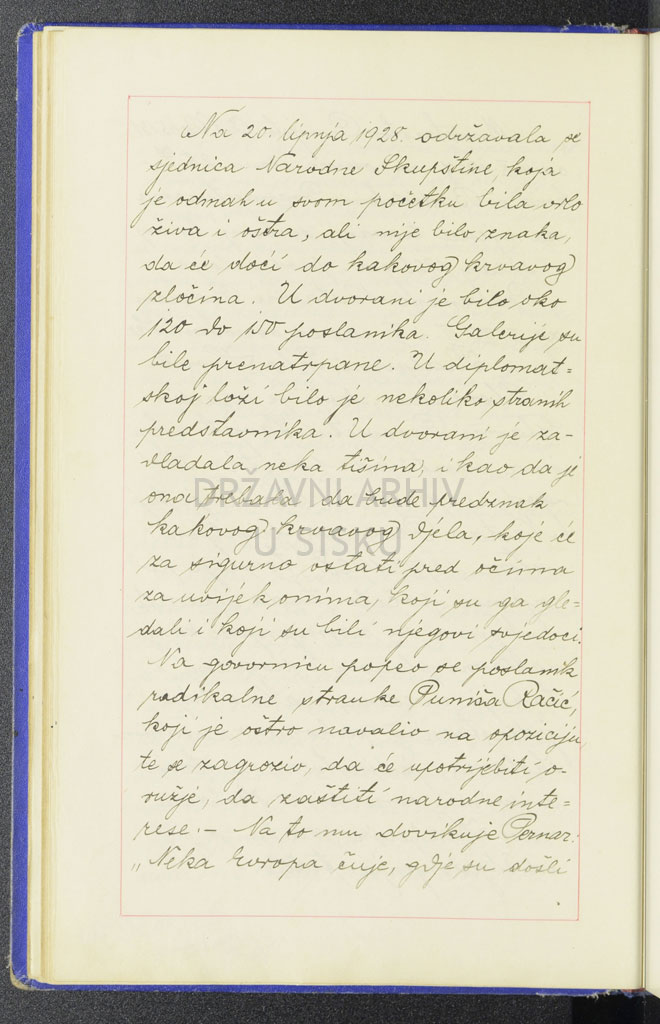 Na 20. lipnja 1928. održavala se
sjednica Narodne Skupštine, koja
je odmah u svom početku bila vrlo
živa i oštra, ali nije bilo znaka,
da će doći do kakovog krvavog
zločina. U dvorani je bilo oko
120 do 150 poslanika. Galerije su
bile prenatrpane. U diplomat=
skoj loži bilo je nekoliko stranih
predstavnika. U dvorani je za-
vladala neka tišina, i kao da je
ona trebala da bude predznak
DRŽAVNI ARHIV
kakovog krvavog djela, koje će
U SISKU
za sigurno ostati pred očima
za uvijek onima, koji su ga gle-
dali i koji su bili njegovi svjedoci.
Na govornicu popeo se poslanik
radikalne stranke Puniša Račić,
koji je oštro navalio na opoziciju,
te se zagrozio, da će upotrijebiti o-
ružje, da zaštiti narodne inte=
rese. – Na to mu dovikuje Pernar:
„Neka Evropa čuje, gdje su došli